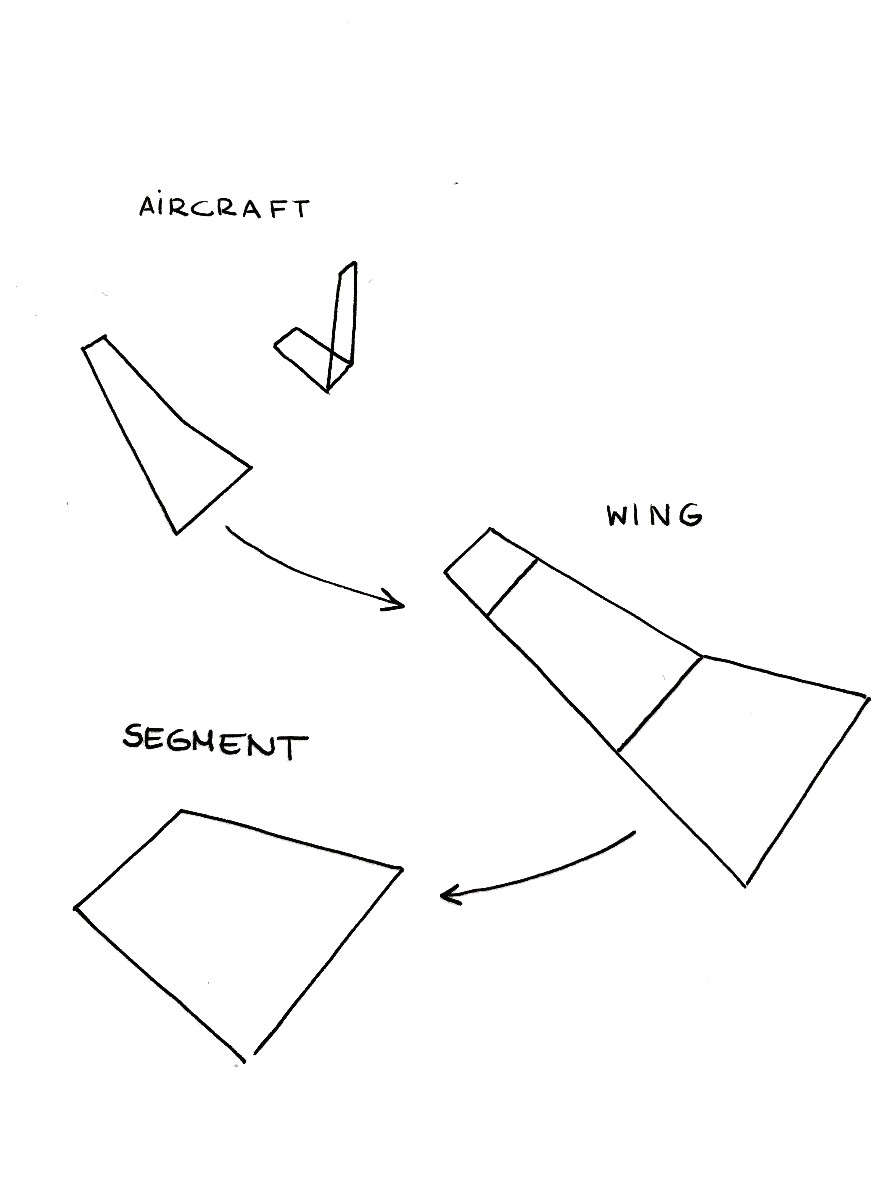 AiRCRAFT
WING
SEGMENT